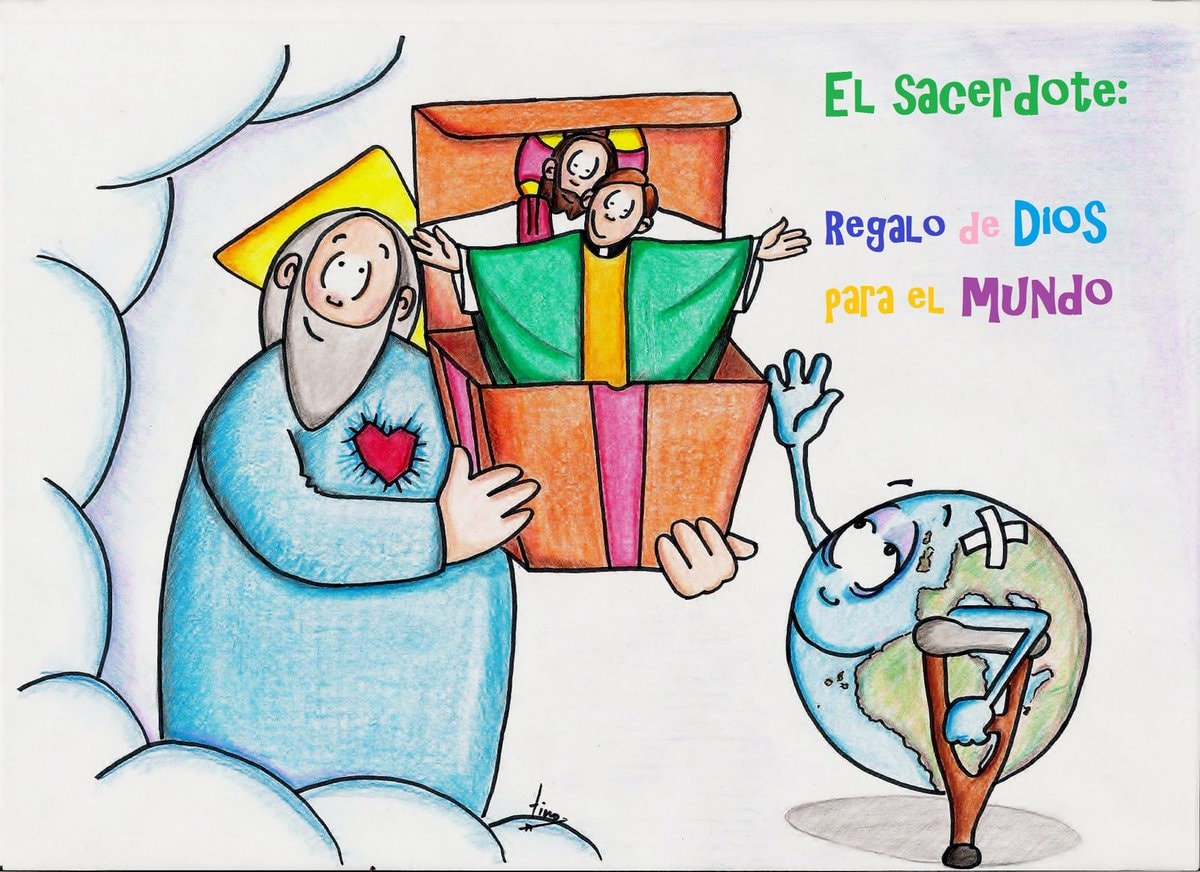 El Sacerdote:
Regalo de Dios
para el MUNDO